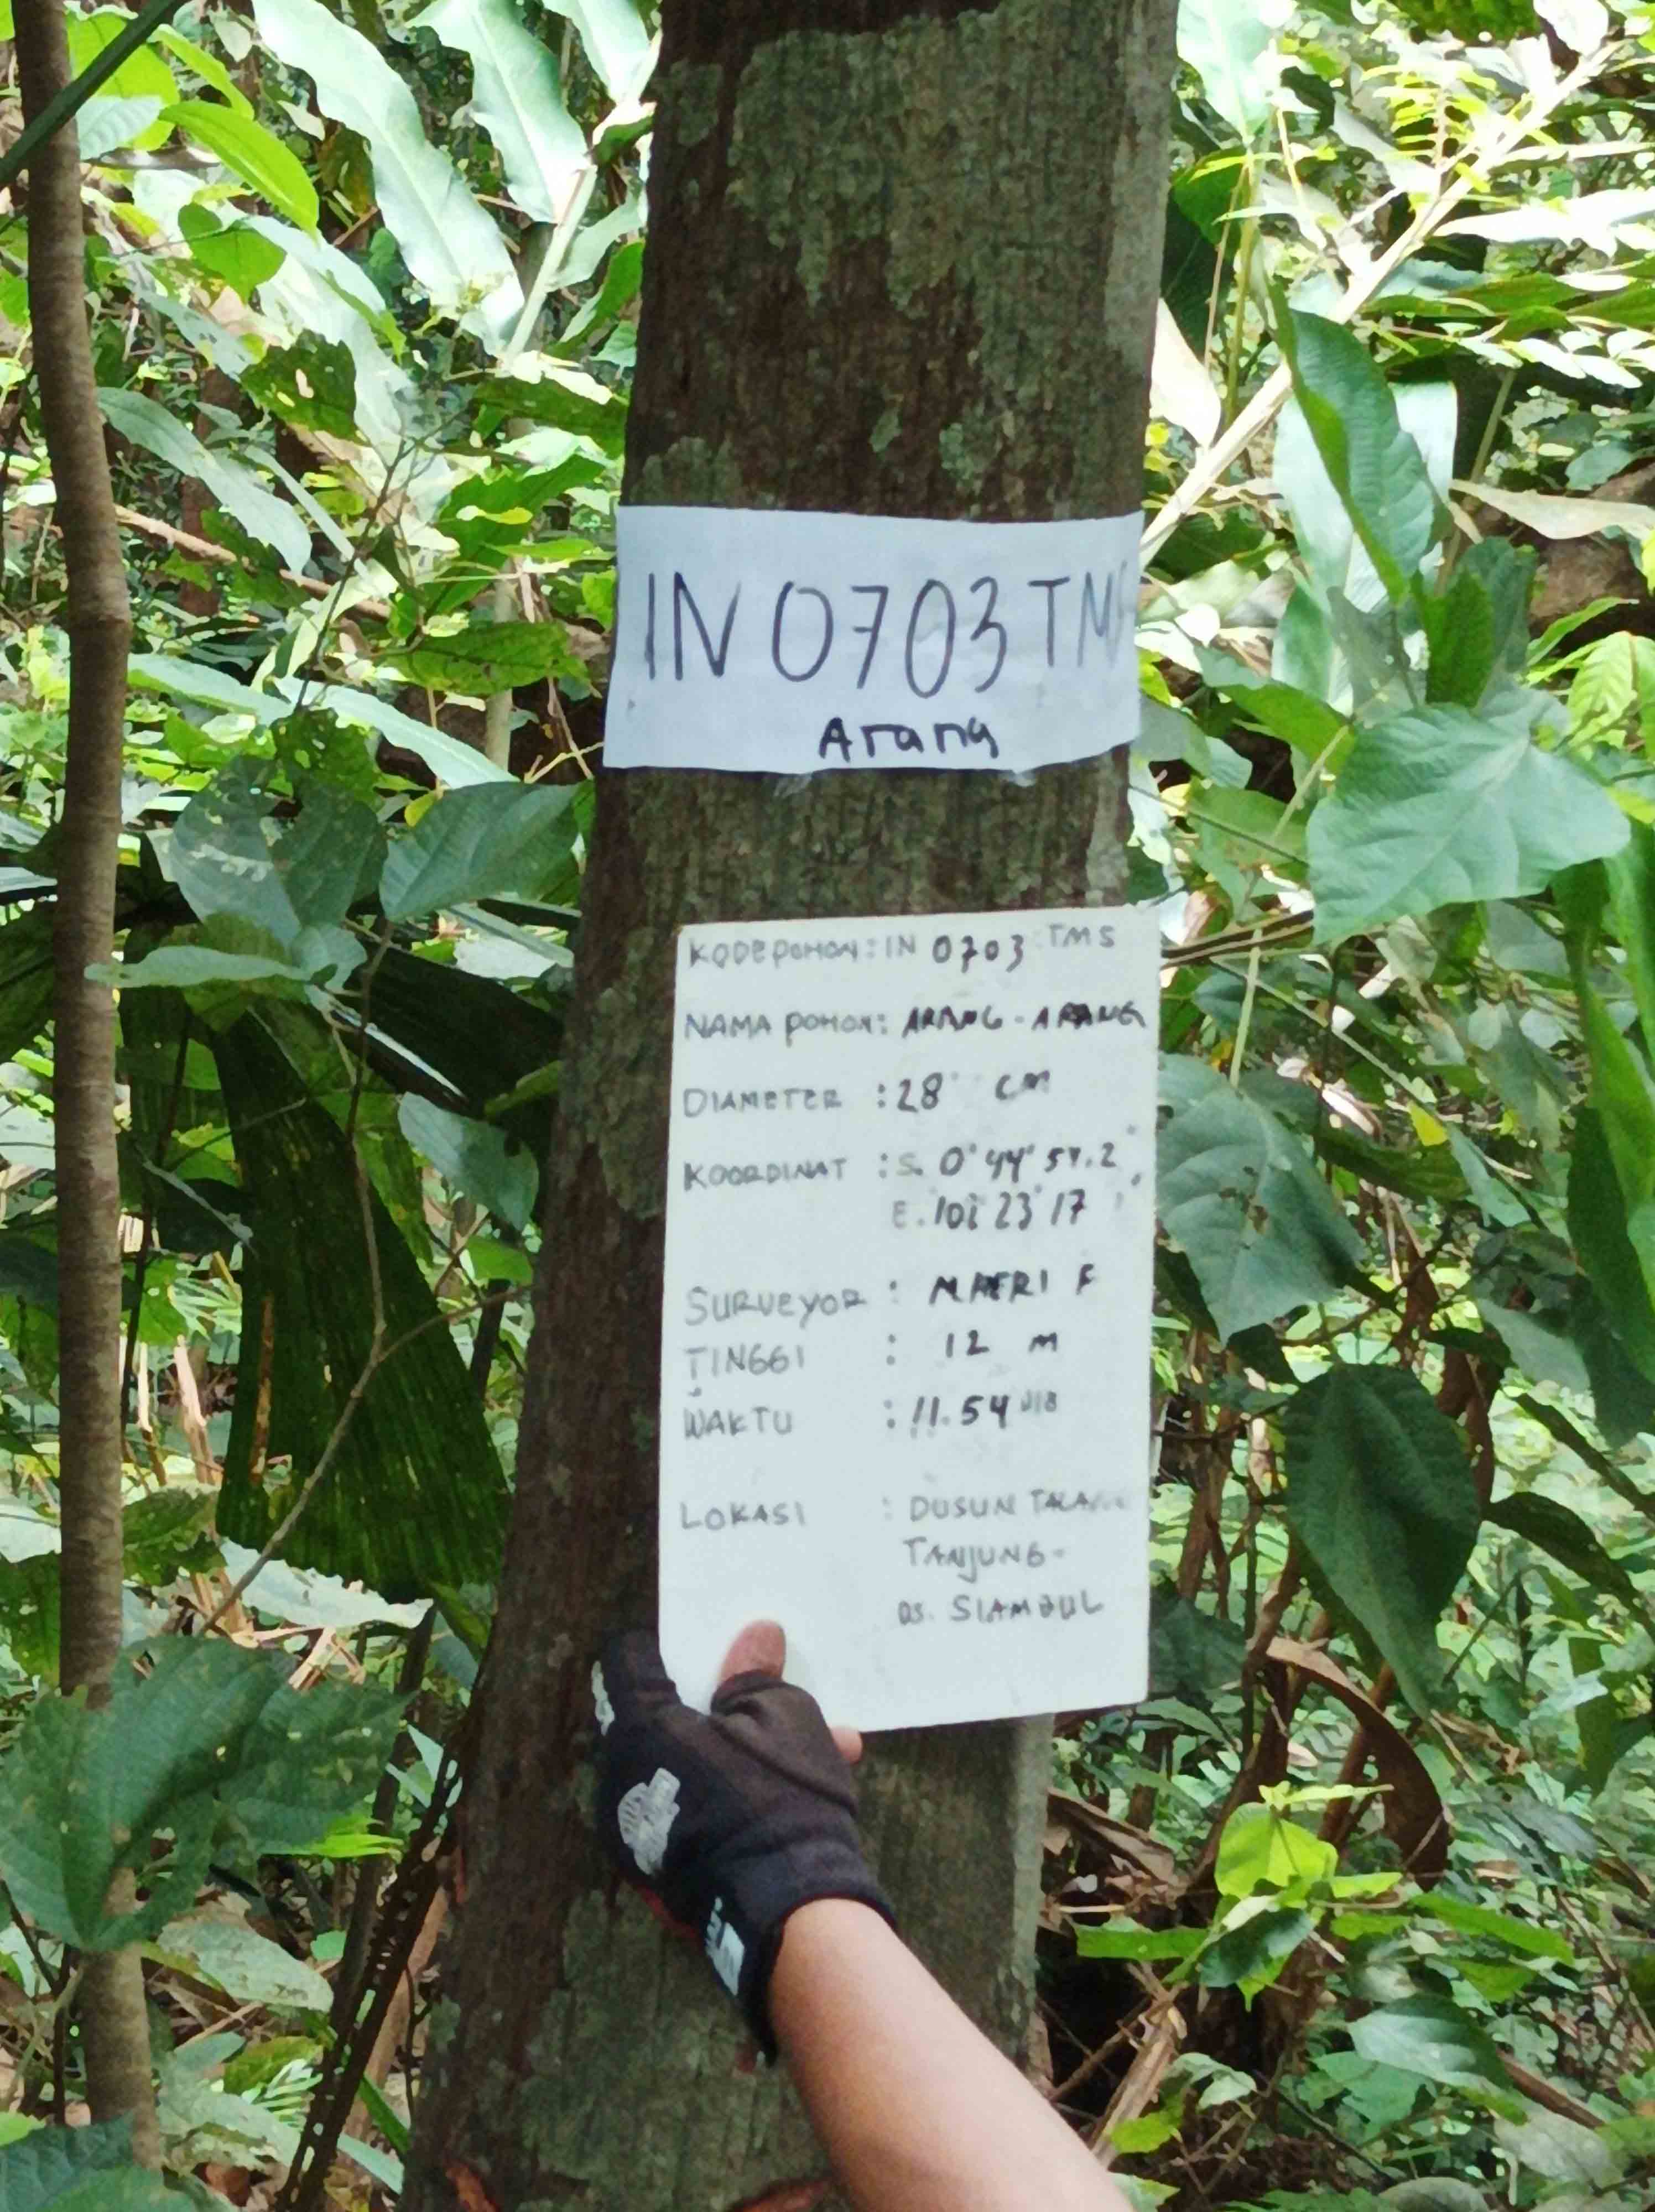 IN 0703 TMS
Arang
KODE POHON : IN 0703 TMS
NAMA POHON : ARANG - ARANG
DIAMETER : 28 CM
KOORDINAT : S. 0° 44' 57.2"
E. 102° 23' 17
SURVEYOR : F
TINGGI : 12 M
WAKTU : 11.54 WIB
LOKASI : DUSUN
TANJUNG -
DS. SIAMBUL